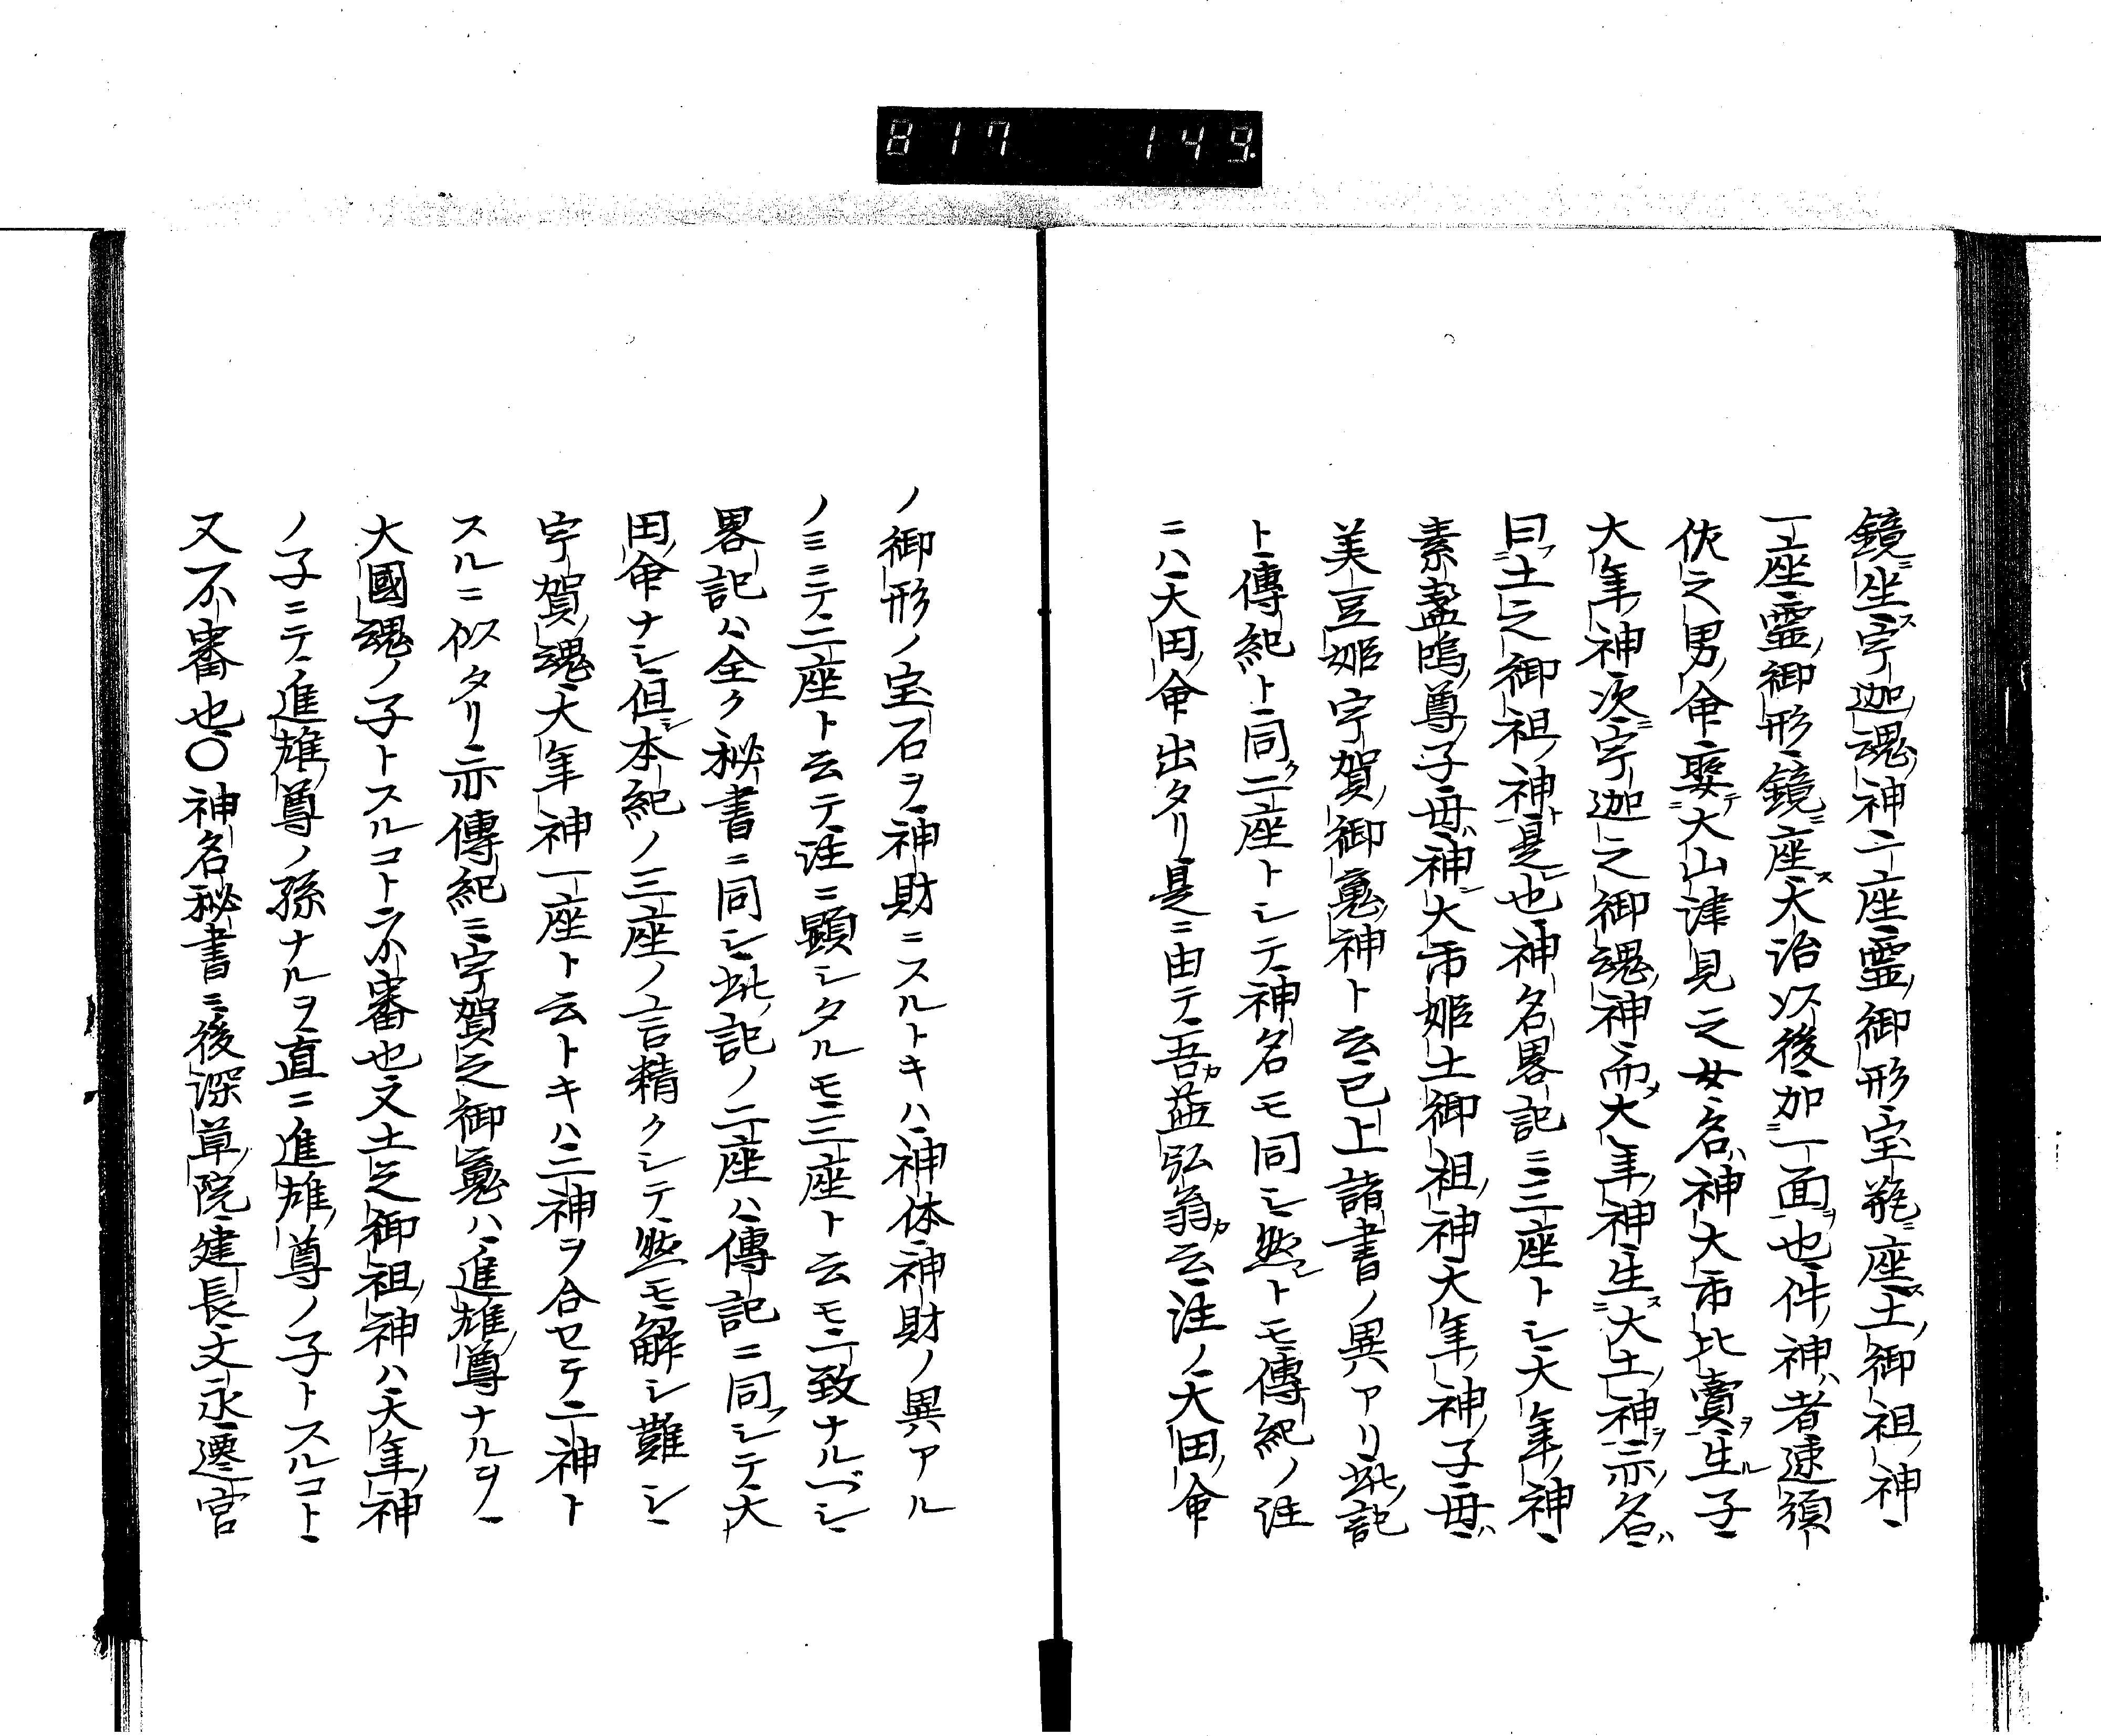 817 149.
鏡ニ坐ス宇迦魂神二座霊御形宝瓶ニ座ス土御祖神
一座霊御形鏡ニ座ス大治以後加一面ヲ也件神ハ者速須
佐之男命娶テ大山津見之女名ハ神大市比賣ヲ生ル子
大年神次ニ宇迦之御魂神而メ大年神生ス大土神ヲ亦ノ名ハ
曰フ土之御祖神ト是也神名畧記ニ三座トシ大年神
素盞嗚尊子母ハ神大市姫土御祖神大年神子母ハ
美豆姫宇賀御䰟神ト云已上諸書ノ異アリ此記
ト傳紀ト同ク二座トシテ神名モ同シ然レトモ傳紀ノ注
ニハ大田命出タリ是ニ由テ吾益弘翁云注ノ大田命
ノ御形ノ宝石ヲ神財ニスルトキハ神体神財ノ異アル
ノミニテ二座ト云テ注ニ顕シタルモ三座ト云モ一致ナルベシ
畧記ハ全ク秘書ニ同シ此記ノ二座ハ傳記ニ同フシテ大
田命ナシ但シ本紀ノ三座ノ言精クシテ然モ解シ難シ
宇賀魂大年神一座ト云トキハ二神ヲ合セテ一神ト
スルニ似タリ亦傳紀ニ宇賀之御䰟ハ進雄尊ナルヲ
大國魂ノ子トスルコト不審也又土之御祖神ハ大年神
ノ子ニテ進雄尊ノ孫ナルヲ直ニ進雄尊ノ子トスルコト
又不審也〇神名秘書ニ後深草院建長文永遷宮